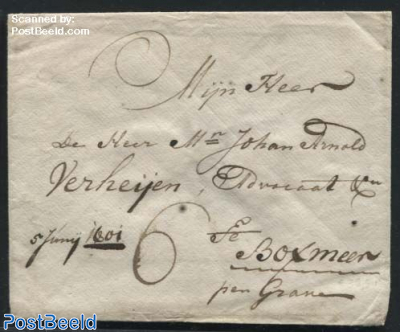 Scanned by
PostBeeld.com
Mijn Heer
De Heer Mr Johan Arnold
Verheijen, Advocaat &n
5 Junij 1801 6 Te
Boxmeer
per Grave
PostBeeld.com